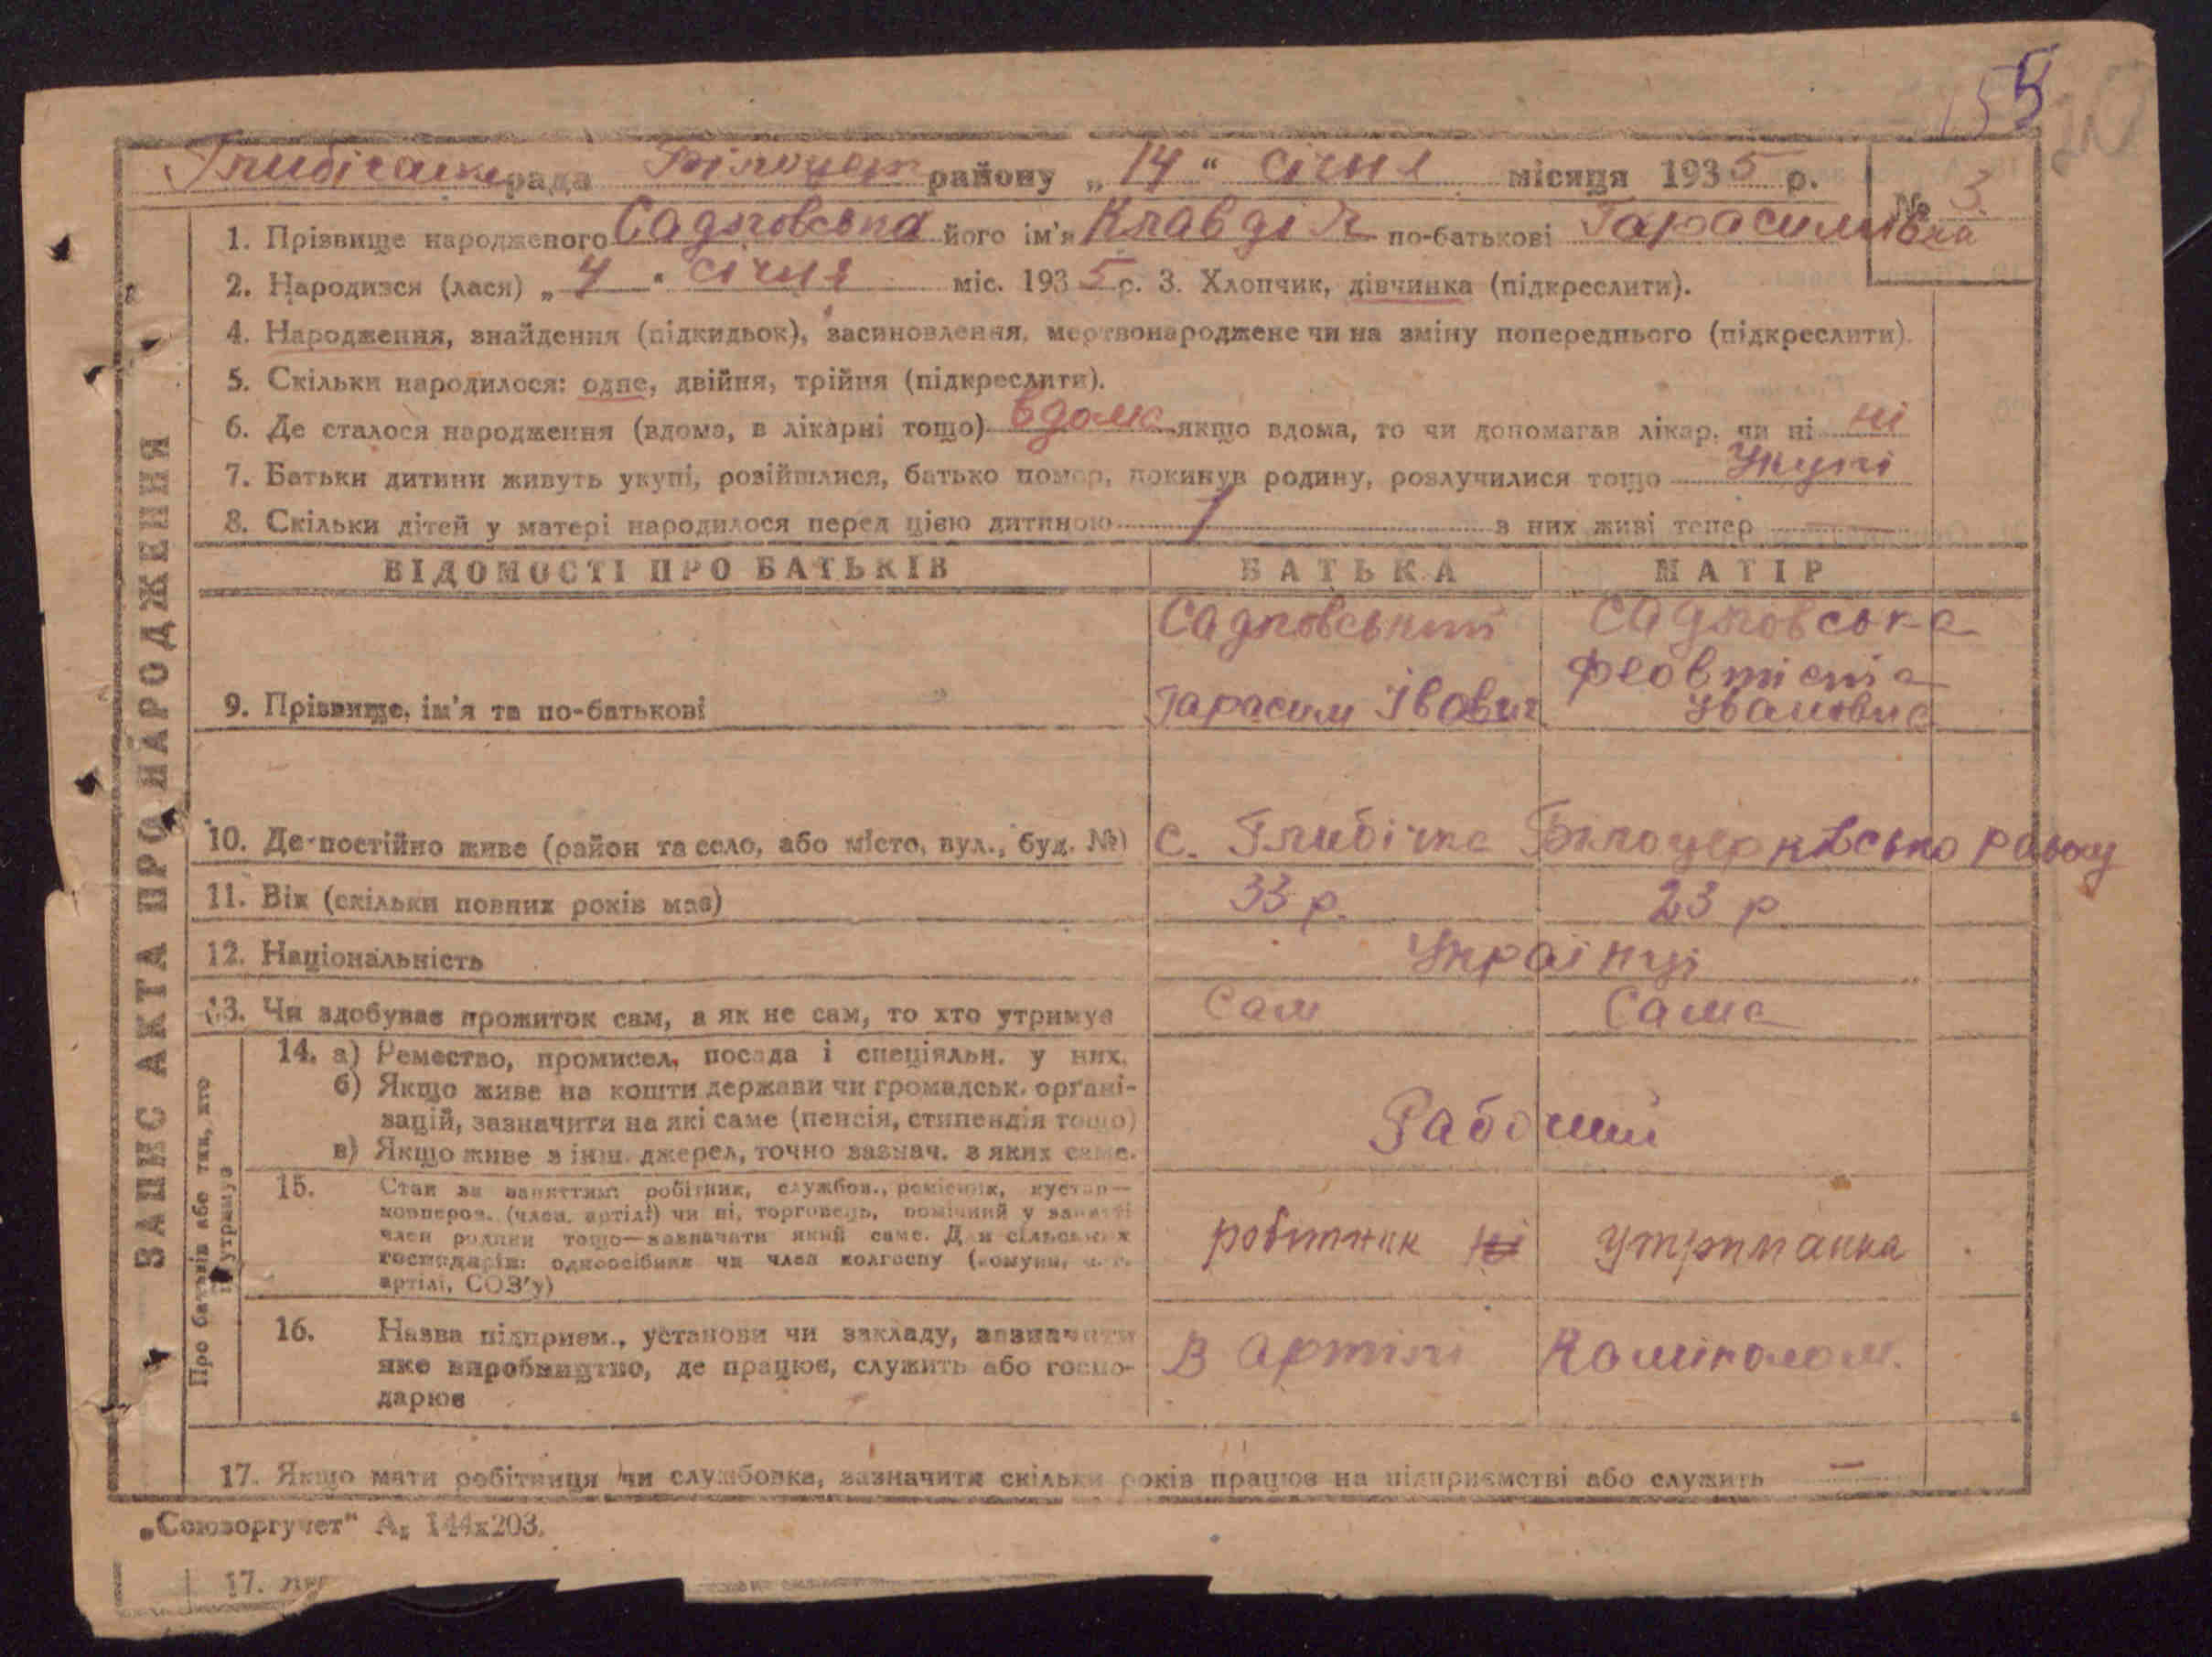 155
20
Глибічанс рада Білоцер району „14“ січня місяця 1935 р.
№ 3.
1. Прізвище народженого Садковська його ім'я Клавдія по-батькові Гарасимівна
2. Народився (лася) „4“ січня міс. 1935 р. 3. Хлопчик, дівчинка (підкреслити).
4. Народження, знайдення (підкидьок), засиновлення, мертвонароджене чи на зміну попереднього (підкреслити).
5. Скільки народилося: одне, двійня, трійня (підкреслити).
6. Де сталося народження (вдома, в лікарні тощо) вдома якщо вдома, то чи допомагав лікар, чи ні ні
7. Батьки дитини живуть укупі, розійшлися, батько помер, покинув родину, розлучилися тощо Укупі
8. Скільки дітей у матері народилося перед цією дитиною 1 з них живі тепер —
ВІДОМОСТІ ПРО БАТЬКІВ БАТЬКА МАТІР
9. Прізвище, ім'я та по-батькові
Садковський
Гарасим Івович
Садковська
Феовтістя
Івановна
10. Де постійно живе (район та село, або місто, вул., буд. №) с. Глибічка Білоцерківсько району
11. Вік (скільки повних років має) 33 р. 23 р
12. Національність Українці
13. Чи здобуває прожиток сам, а як не сам, то хто утримує Сам Сама
Про батьків або тих, хто їх утримує
14. а) Ремество, промисел, посада і спеціяльн. у них.
б) Якщо живе на кошти держави чи громадськ. органі-
зацій, зазначити на які саме (пенсія, стипендія тощо)
в) Якщо живе з інш. джерел, точно зазнач. з яких саме.
Рабочий
15. Стан за заняттям: робітник, службов., ремісник, кустар—
коопером. (член. артілі) чи ні, торговець, помічний у занятті
член родини тощо—зазначати який саме. Для сільських
господарів: одноосібник чи член колгоспу (комуни, с.-г.
артілі, СОЗ'у)
робітник ні утриманка
16. Назва підприєм., установи чи закладу, зазначити
яке виробництво, де працює, служить або госпо-
дарює
В Артілі Камінолом.
17. Якщо мати робітниця чи службовка, зазначити скільки років працює на підприємстві або служить —
ЗАПИС АКТА ПРО НАРОДЖЕННЯ
„Союзоргучет“ А₅ 144х203.
17.